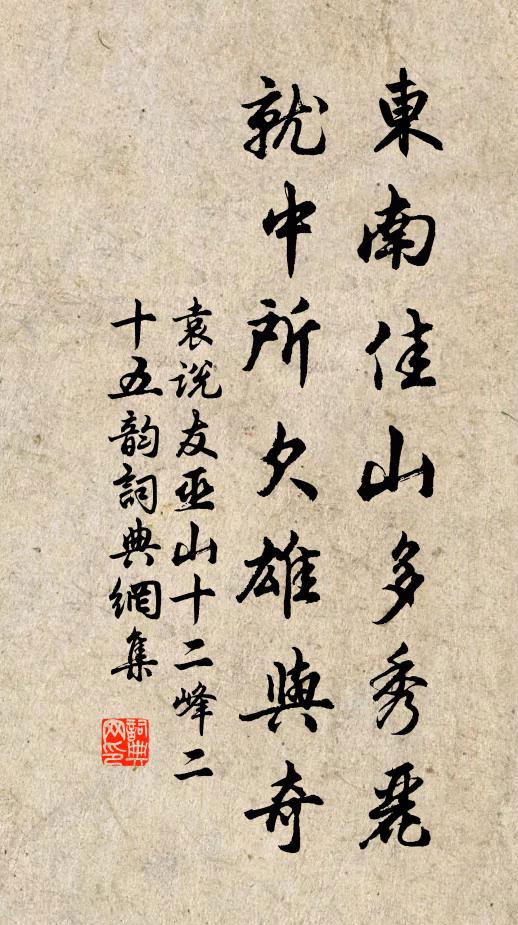 東南佳山多秀麗
就中所欠雄與奇
袁説友巫山十二峰二
十五韵詞典網集
詞典
网印